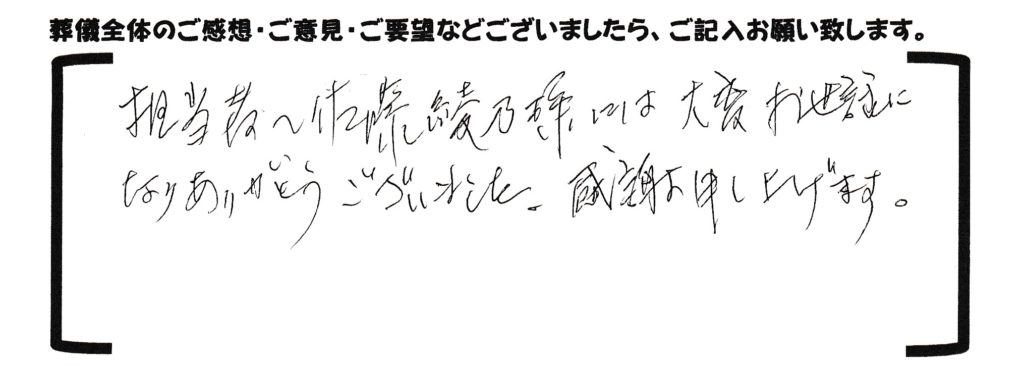 葬儀全体のご感想・ご意見・ご要望などございましたら、ご記入お願い致します。
担当者の佐藤綾乃様には大変お世話に
なりありがとうございました。感謝お申し上げます。